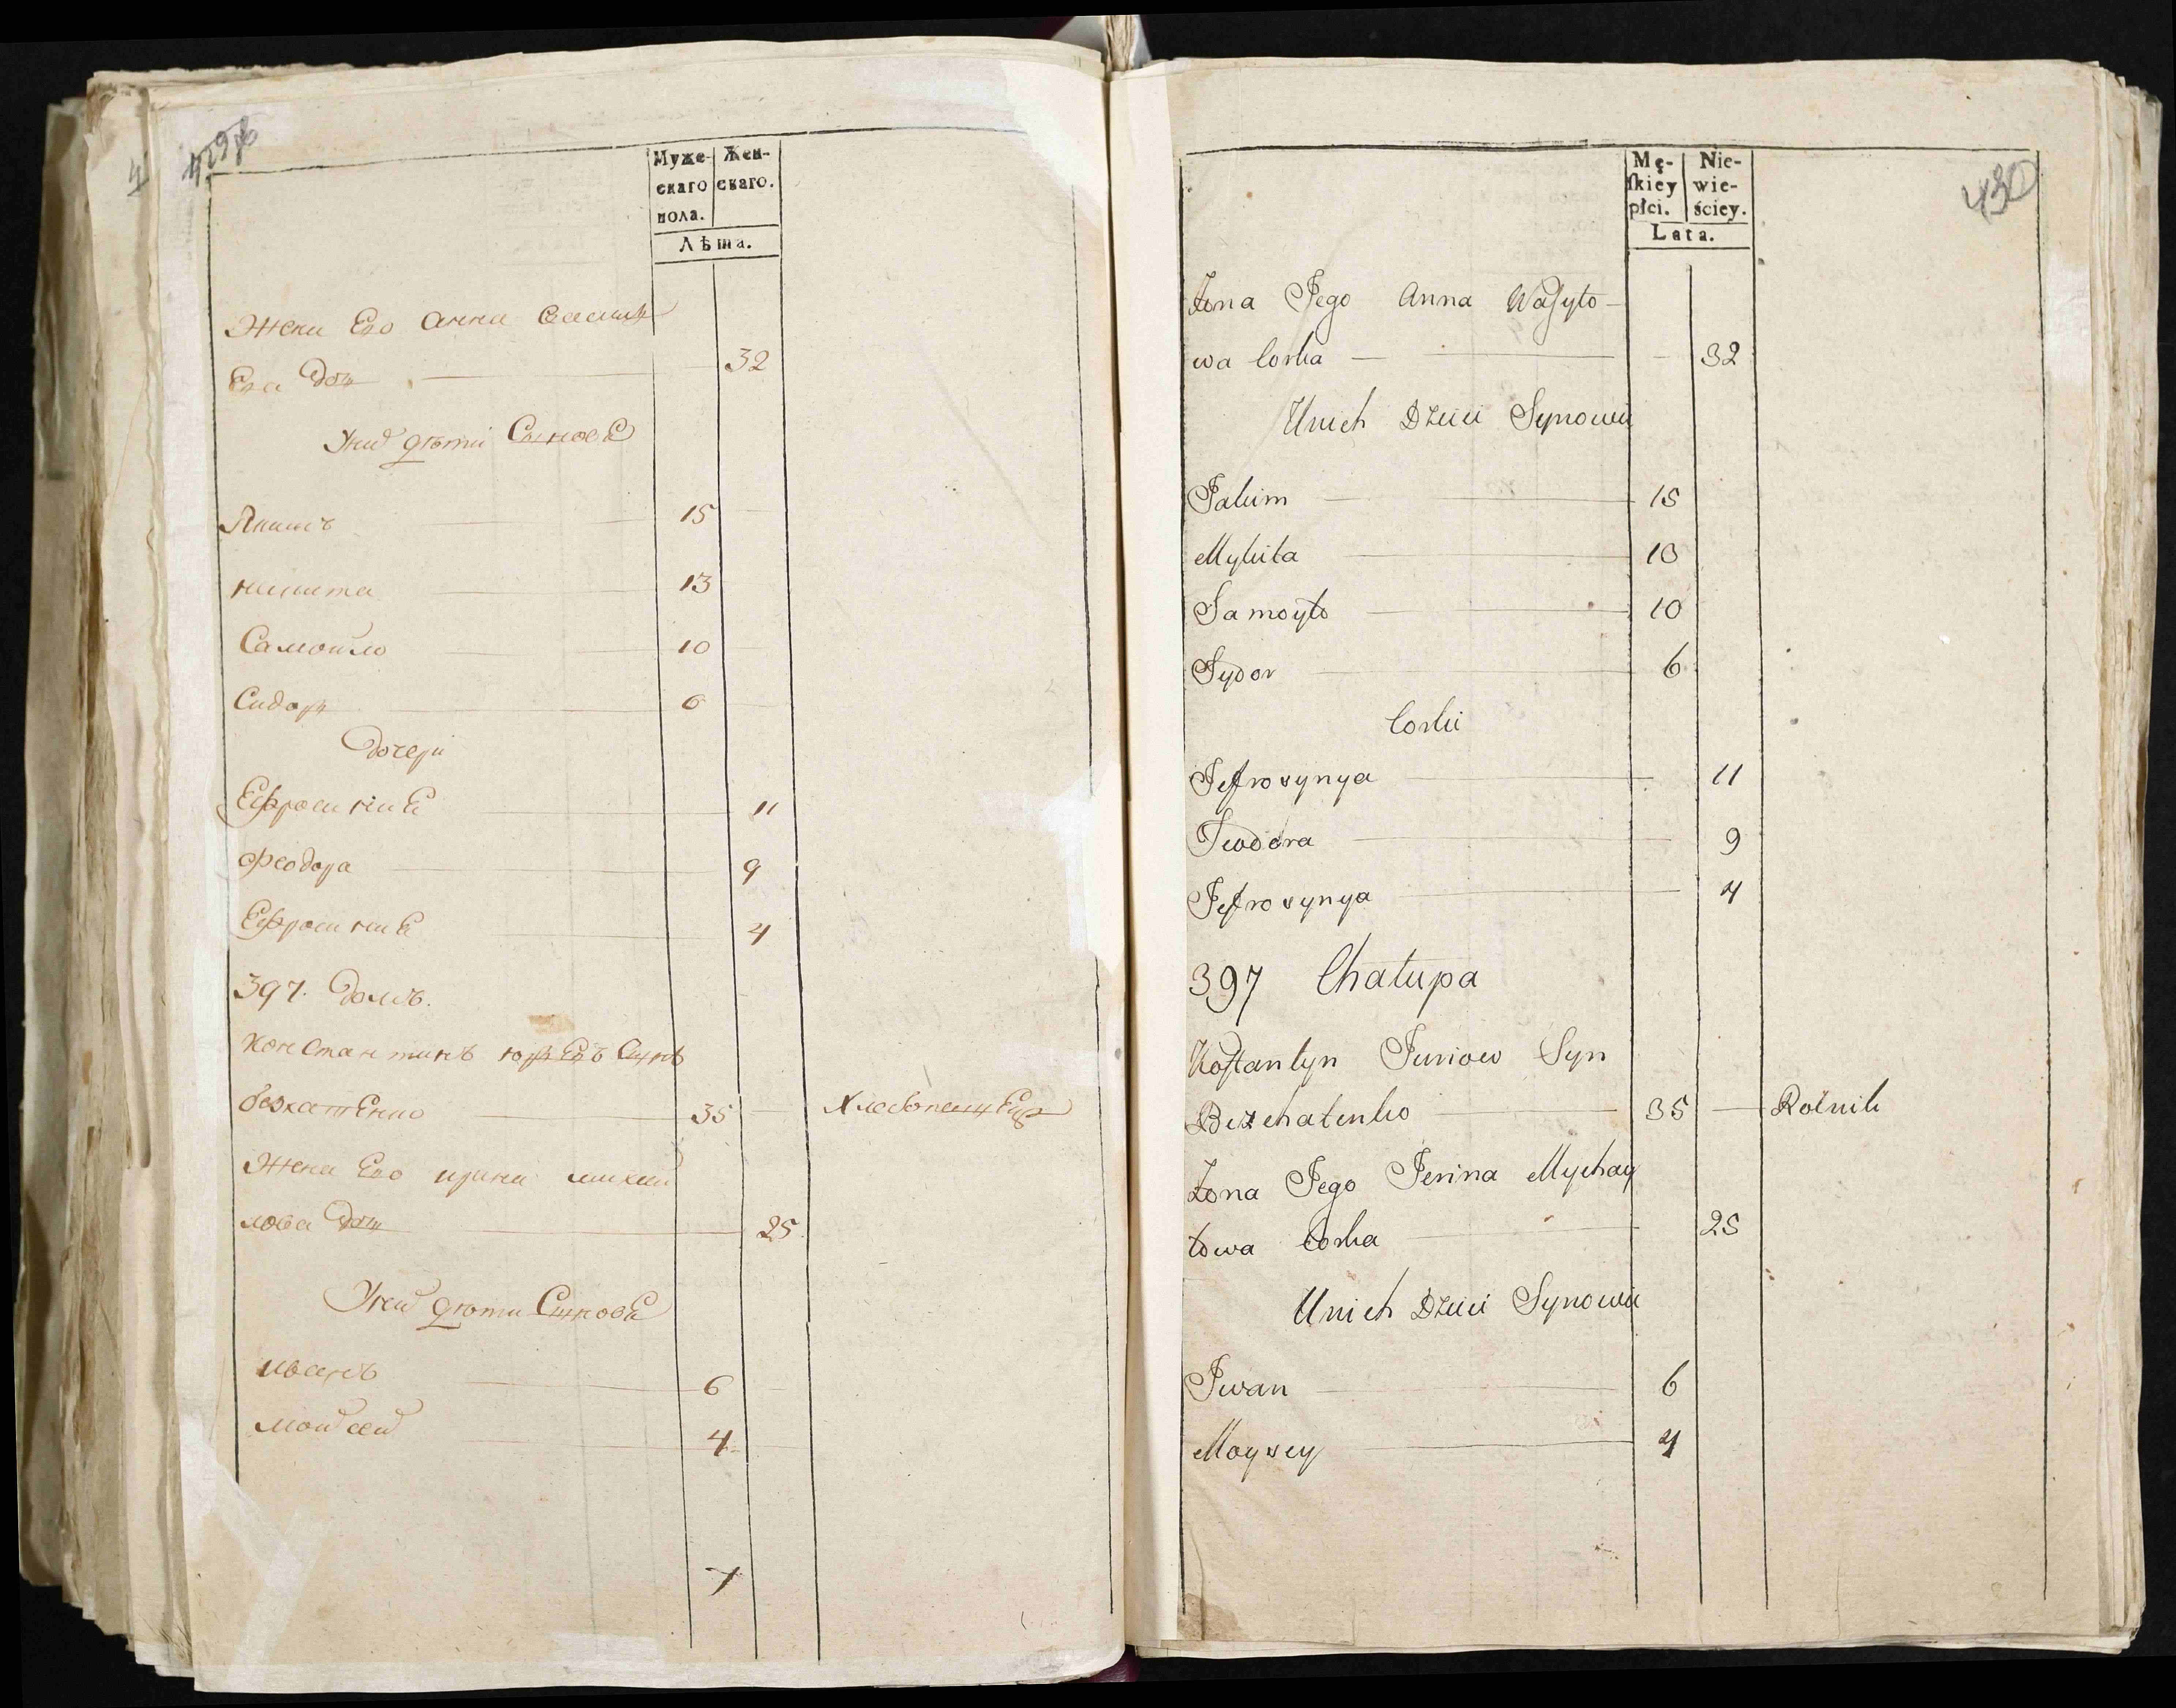 429 об
Муже- Жен-
скаго скаго.
пола.
Лѣта.
Жена Его Анна Васил
Ева дощ 32
У них дѣти Синовѣ
Якимъ 15
Никита 13
Самойло 10
Сидоръ 6
Дочери
Ефросиніѣ 11
Феодора 9
Ефросиніѣ 4
397. Домъ.
Константинъ Юрьевъ Синъ
безхатенко 35 Хлебопашецъ
Жена Его Ирина Михай
лова дощ 25.
У них дѣти Синовѣ
Иванъ 6
Мойсей 4
7
430
Mę- Nie-
ſkiey wie-
płci. ściey.
Lata.
Żona Jego Anna Waſyło-
wa Corka 32
Unich Dzieci Synowie
Jakim 15
Mykita 13
Samoyło 10
Sydor 6
Corki
Jefrosynya 11
Teodora 9
Jefrosynya 4
397 Chałupa
Koſtantyn Juriow Syn
Bezchatenko 35 Rolnik
Żona Jego Jerina Mychay
łowa Corka 25
Unich Dzieci Synowie
Iwan 6
Moysey 4